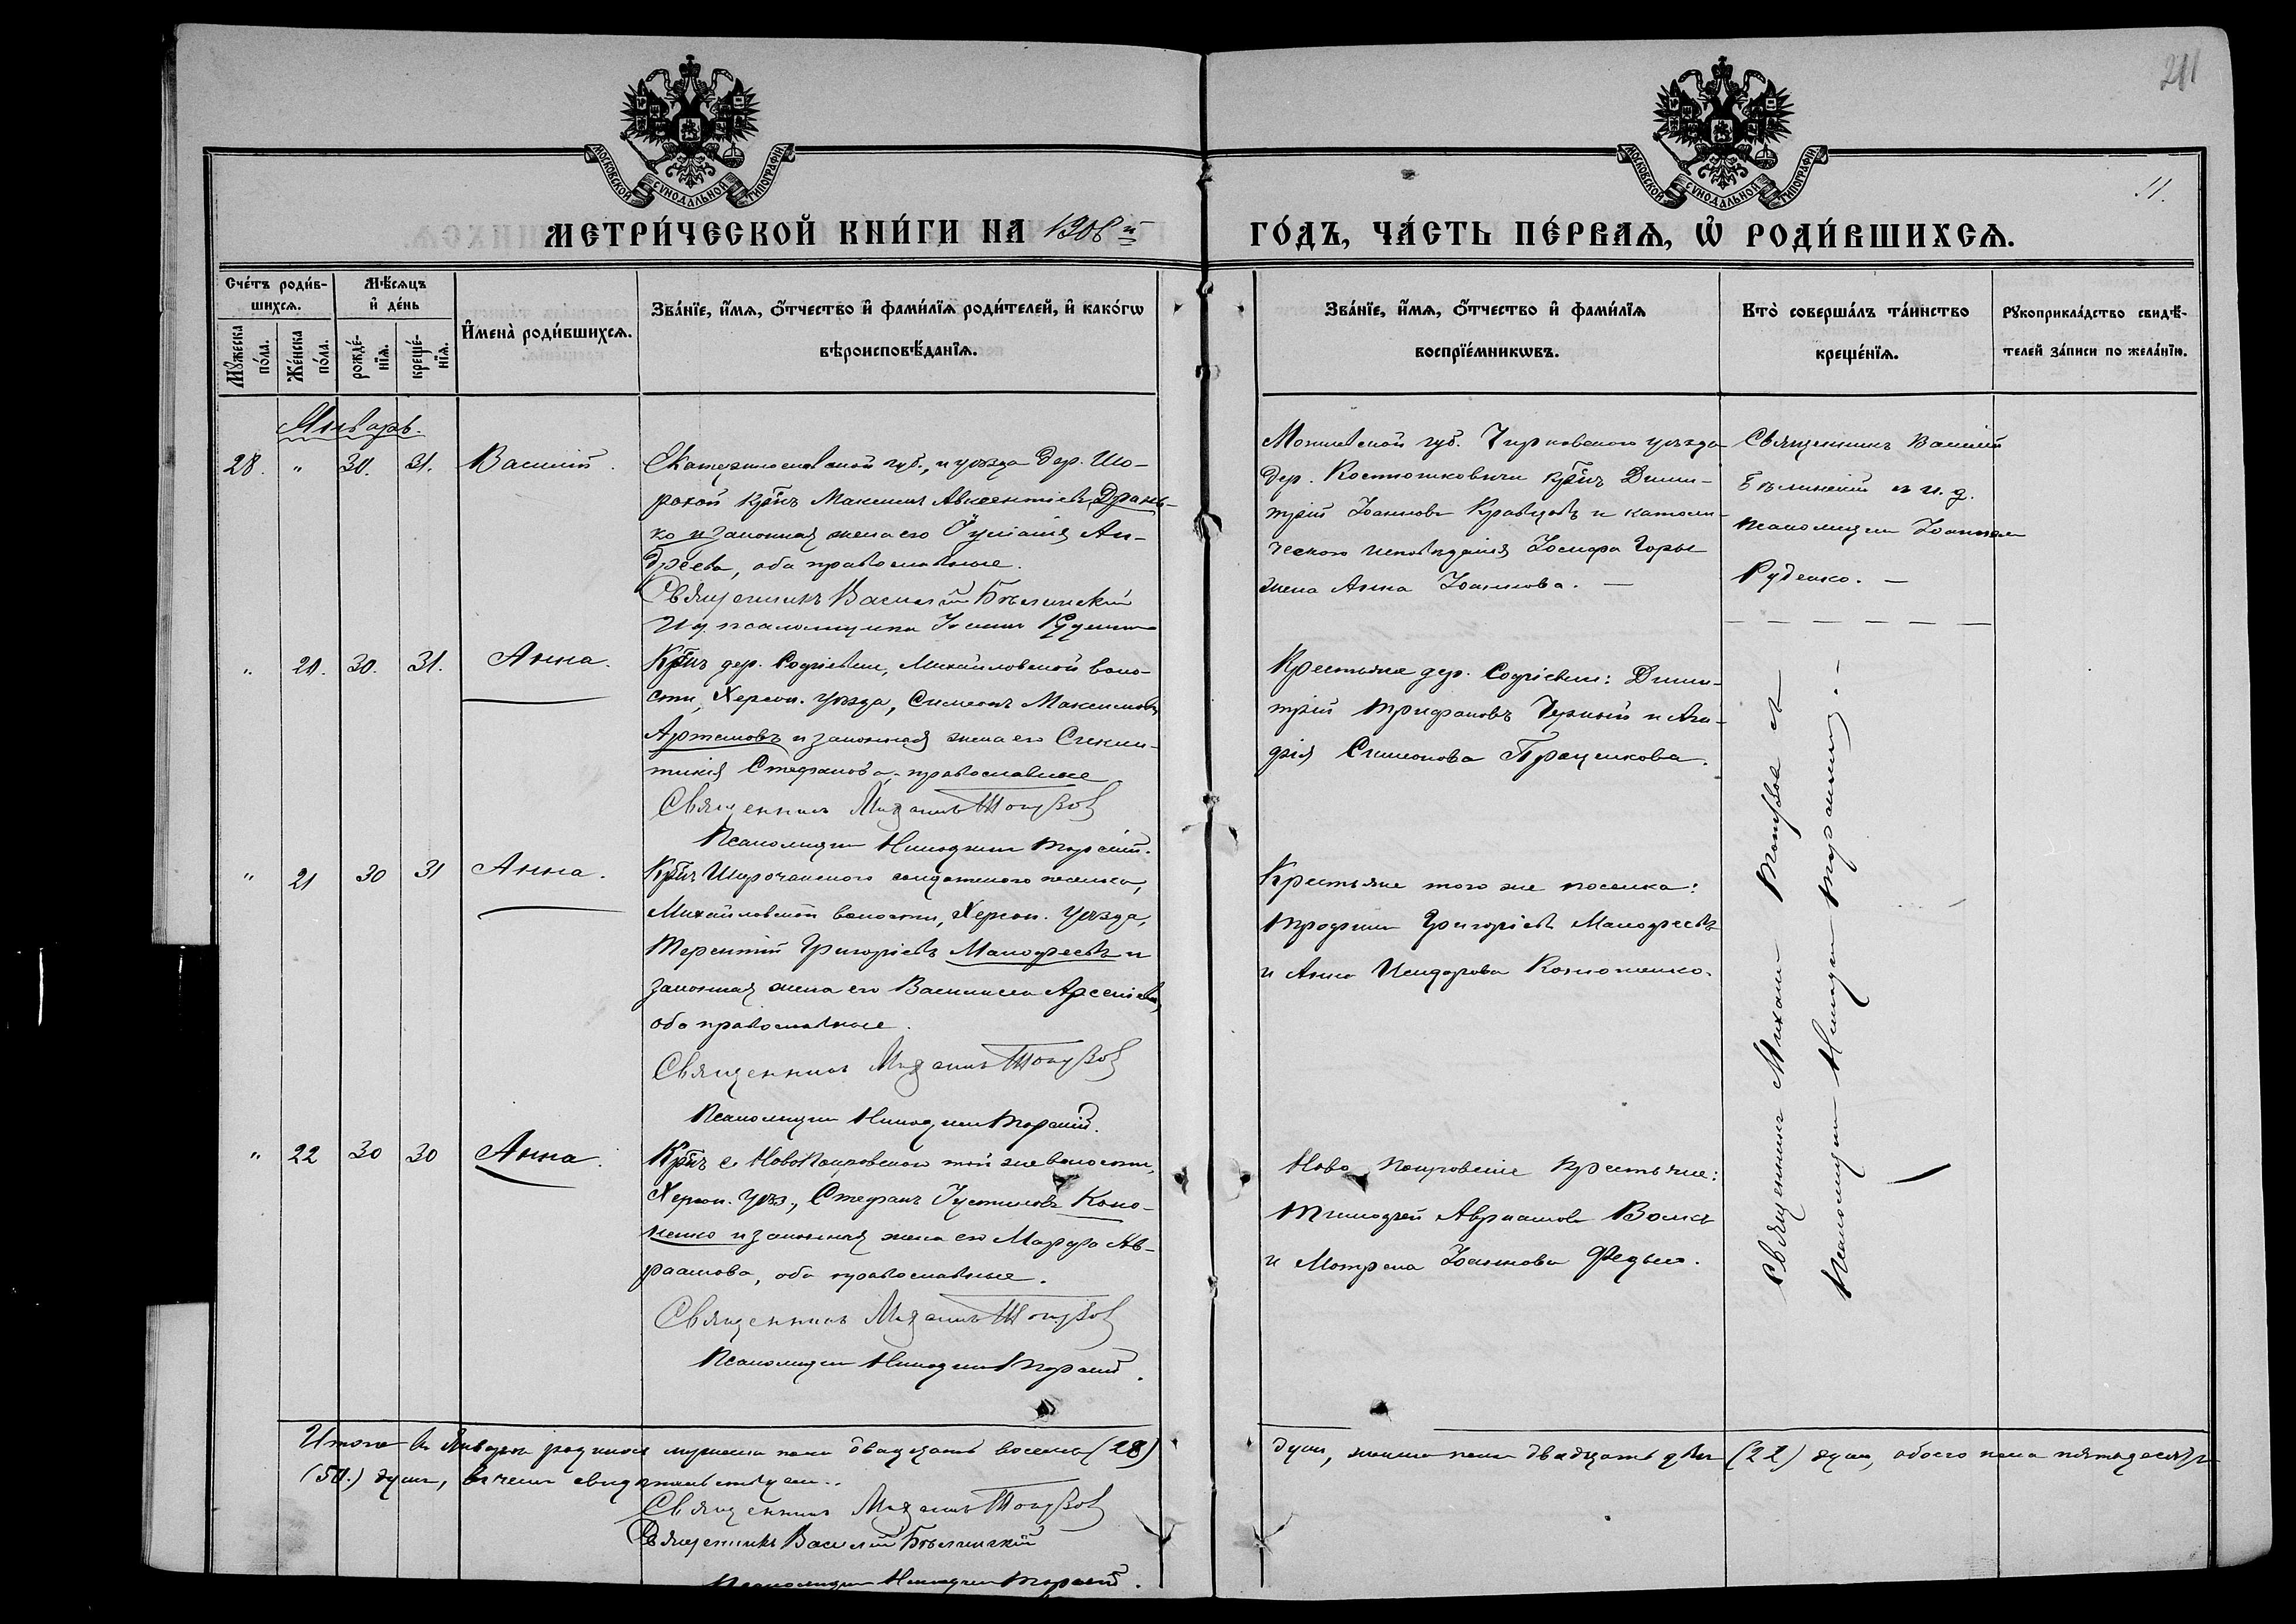 211
11.
МОСКОВСКОЙ СѴНОДАЛЬНОЙ ТИПОГРАФІИ
МОСКОВСКОЙ СѴНОДАЛЬНОЙ ТИПОГРАФІИ
МЕТРИ́ЧЕСКОЙ КНИ́ГИ НА 1908 й
ГО́ДЪ, ЧА́СТЬ ПЕ́РВАѦ, Ѡ҆ РОДИ́ВШИХСѦ.
Сче́тъ роди́в-
шихсѧ.
Мѣ́сѧцъ
и҆ де́нь
Мꙋ́жеска по́ла.
Же́нска по́ла.
рожде́-нїѧ.
креще́-нїѧ.
И҆мена̀ роди́вшихсѧ.
Зва́нїе, и҆́мѧ, ѻ҆́тчество и҆ фами́лїѧ роди́телей, и҆ како́гѡ
вѣроисповѣ́данїѧ.
Зва́нїе, и҆́мѧ, ѻ҆́тчество и҆ фами́лїѧ
воспрїе́мникѡвъ.
Кто̀ соверша́лъ та́инство
креще́нїѧ.
Рꙋкоприкла́дство свидѣ́-
телей за́писи по жела́нїю.
Январь.
28. " 30. 31. Василій.
Екатеринославской губ., и уѣзда дер. Шо-
рохой кр-нъ Максимъ Авксентіевъ Драны-
ко и законная жена его Ан-
дреева, оба православные.
Священникъ Василій Бѣлинскій
И д. псаломщика Іоаннъ Руденко
Могилевской губ. уѣзда
дер. Костюшковичи кр-нъ Дими-
трій Іоанновъ Кравцовъ и католи-
ческаго исповѣданія Іосифа Горы
жена Анна Іоаннова. —
Священникъ Василій
Бѣлинскій и и. д.
псаломщика Іоаннъ
Руденко. —
" 20. 30. 31. Анна.
Кр-нъ дер. Софіевки, Михайловской воло-
сти, Херсон. уѣзда, Симеонъ Максимовъ
Артемовъ и законная жена его Синкли-
тикія Стефанова, православные
Священникъ Михаилъ
Псаломщикъ Никодимъ
Крестьяне дер. Софіевки: Дими-
трій Трифоновъ Черный и Ага-
фія Симеонова Проценкова.
" 21 30 31 Анна.
Кр-нъ Широчанского солдатского поселка,
Михайловской волости, Херсон. уѣзда,
Терентій Григоріевъ Малофеевъ и
законная жена его Василиса Арсеніева,
оба православные.
Священникъ Михаилъ
Псаломщикъ Никодимъ
Крестьяне того же поселка:
Трофимъ Григоріевъ Малофеевъ
и Анна Исидорова Кононенко.
" 22 30 30 Анна.
Кр-нъ с. НовоПокровского той же волости,
Херсон. уѣз., Стефанъ Іустиновъ Коно-
ненко и законная жена его Марфа Ав-
раамова, оба православные.
Священникъ Михаилъ
Псаломщикъ Никодимъ
Ново Покровскіе крестьяне:
Тимофей Авраамовъ Волкъ
и Мотрона Іоаннова Федько.
Священникъ Михаилъ
Псаломщикъ Никодимъ
Итого въ Январѣ родилось мужеска пола двадцать восемь (28)
душъ, женска пола двадцать двѣ (22) душъ, обоего пола пятьдесятъ
(50.) душъ, въ чемъ свидѣтельствуемъ.
Священникъ Михаилъ
Священникъ Василій Бѣлинскій
Псаломщикъ Никодимъ